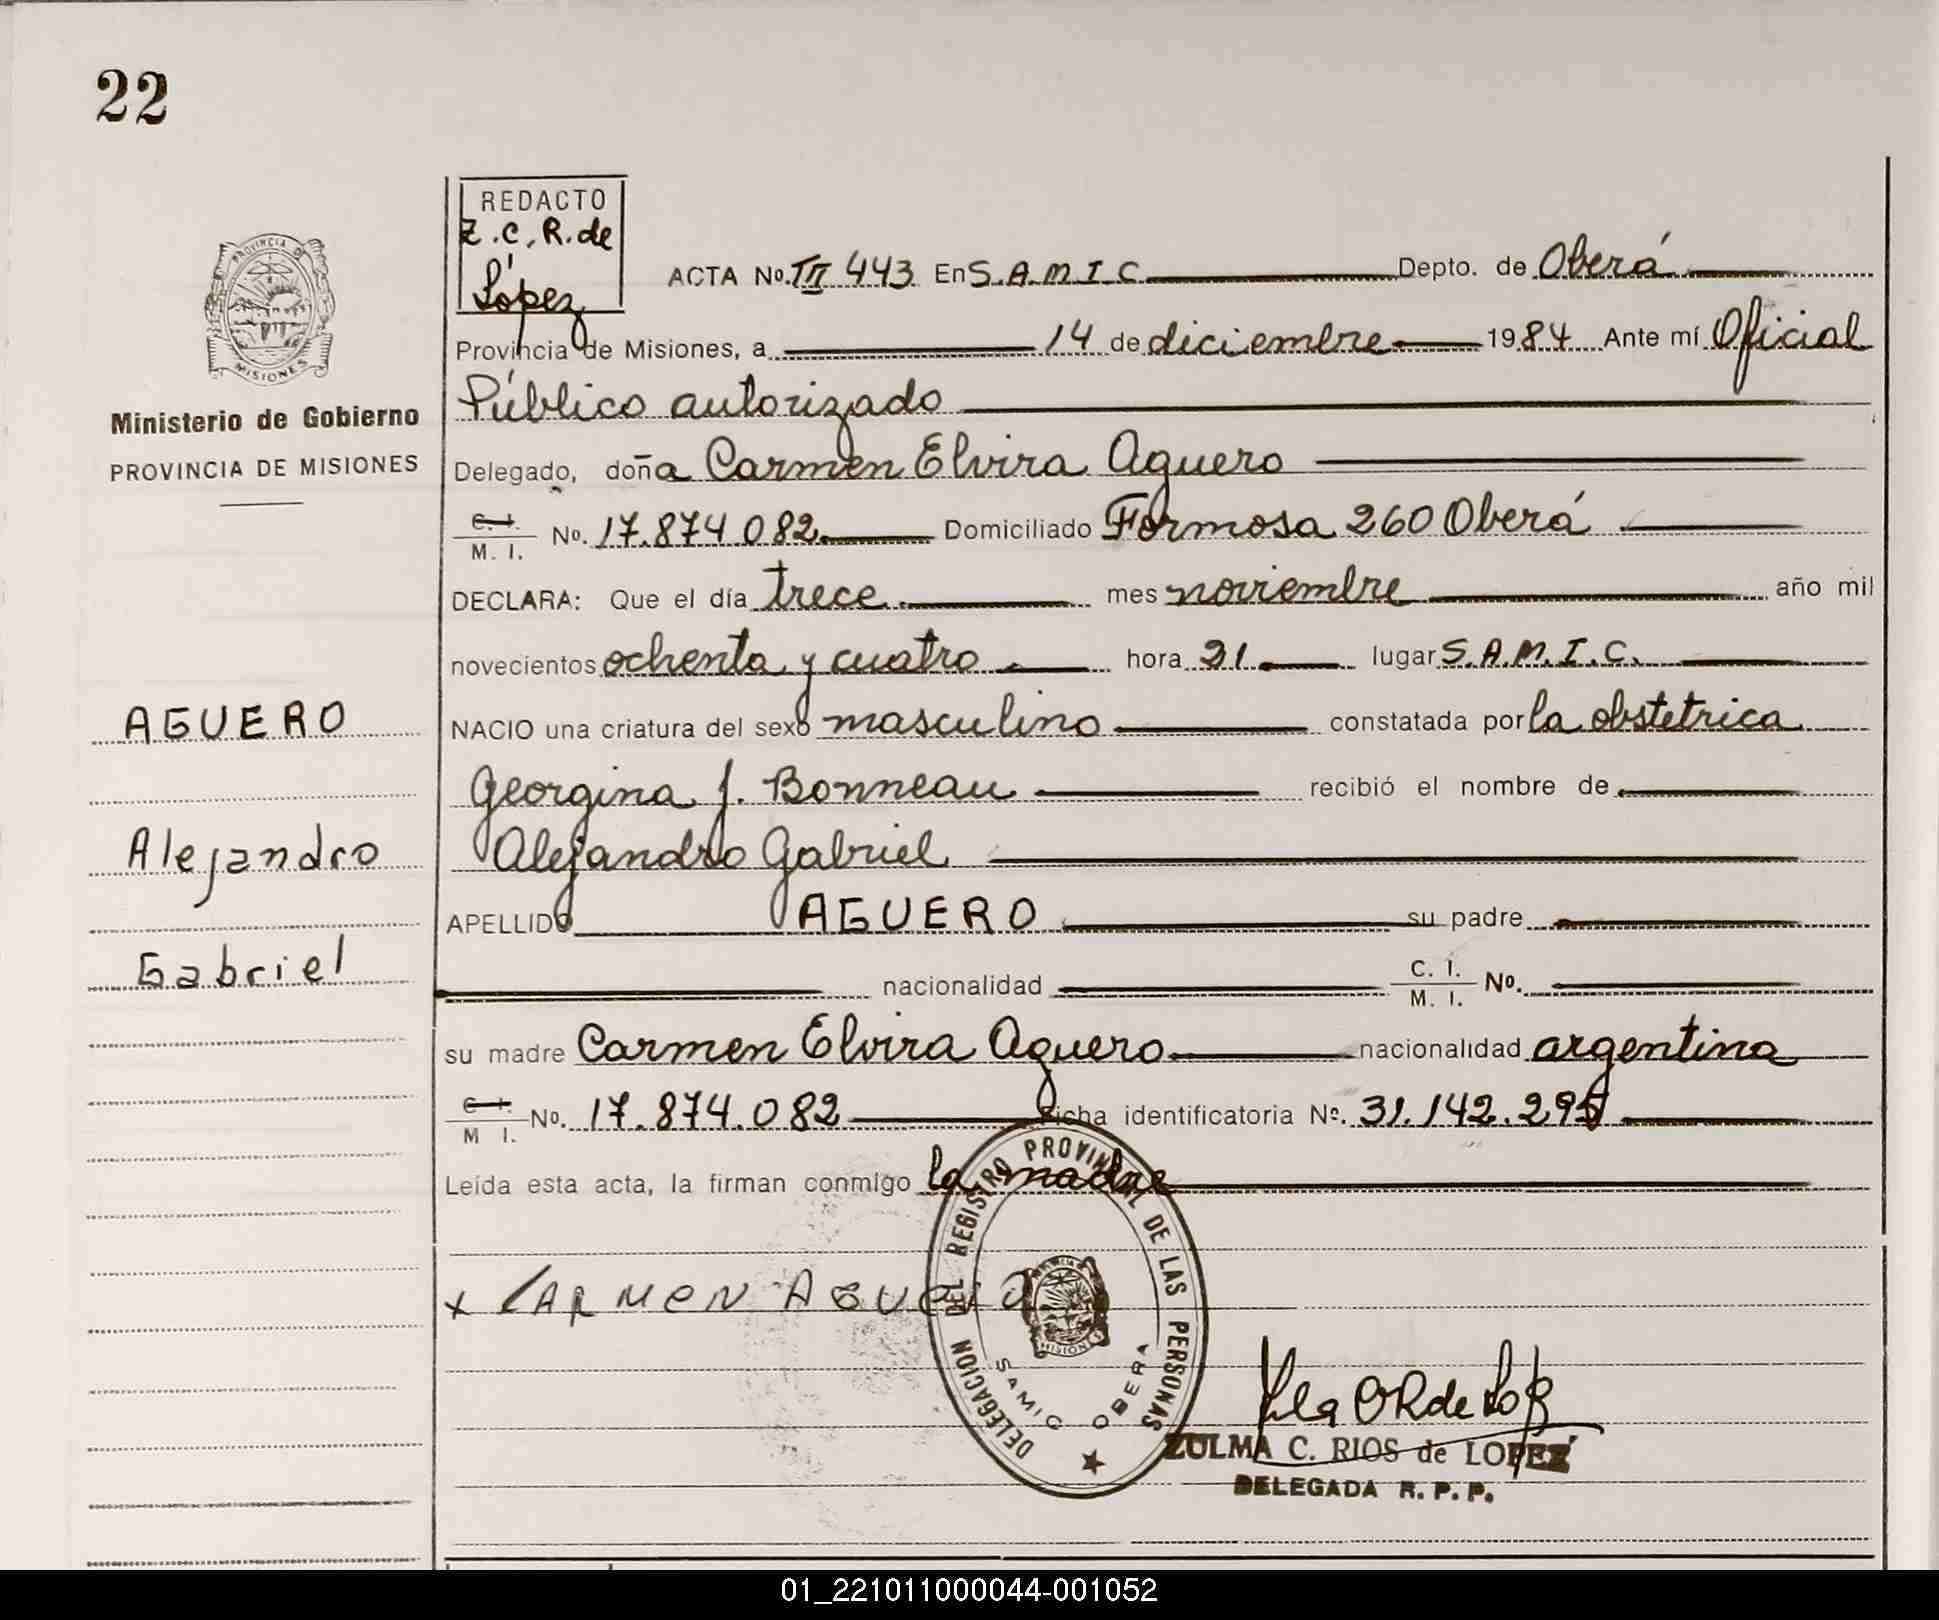 22
REDACTO
Z.C.R. de
López
ACTA No. TII 443 En S.A.M.I.C. Depto. de Oberá
Provincia de Misiones, a 14 de diciembre 1984 Ante mí Oficial
Público autorizado
PROVINCIA DE
MISIONES
Ministerio de Gobierno
PROVINCIA DE MISIONES
Delegado, doña Carmen Elvira Aguero
C. I.
M. I. No. 17.874.082 Domiciliado Formosa 260 Oberá
DECLARA: Que el día trece mes noviembre año mil
novecientos ochenta y cuatro hora 21 lugar S.A.M.I.C.
AGUERO
NACIO una criatura del sexo masculino constatada por la obstetrica
Georgina J. Bonneau recibió el nombre de
Alejandro
Alejandro Gabriel
APELLIDO AGUERO su padre
Gabriel
nacionalidad C. I.
M. I. No.
su madre Carmen Elvira Aguero nacionalidad argentina
C. I.
M I. No. 17.874.082 Ficha identificatoria Nº. 31.142.295
Leída esta acta, la firman conmigo la madre
x CARMEN AGUERO
DELEGACION DEL REGISTRO PROVINCIAL DE LAS PERSONAS
MISIONES
SAMIC OBERA
ZULMA C. RIOS de LOPEZ
DELEGADA R. P. P.
01_221011000044-001052